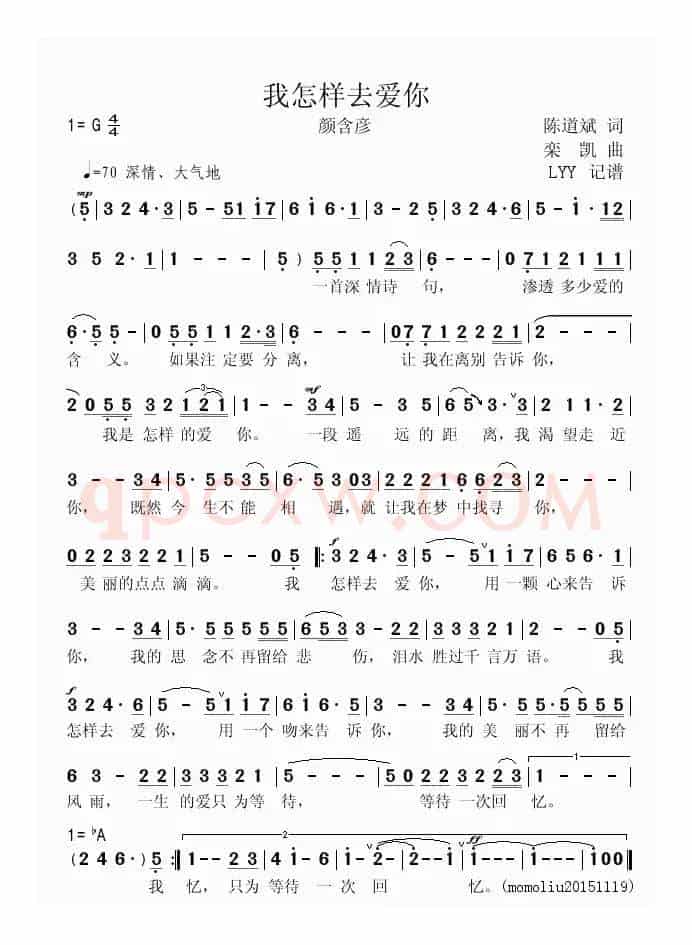 我怎样去爱你
1= G 4/4
颜含彦
陈道斌 词
栾 凯 曲
♩=70 深情、大气地
LYY 记谱
mp
(5|3 2 4·3|5 - 51 17|6 1 6·1|3 - 2 5|3 2 4·6|5 - 1· 12
3 5 2· 1|1 - - -|5)5 5 1 1 2 3|6 - - -|0 7 1 2 1 1 1
一首深 情诗 句, 渗透 多少爱的
6· 5 5 -|0 5 5 1 1 2·3|6 - - -|0 7 7 1 2 2 2 1|2 - - -
含 义。 如果注 定要 分 离, 让 我在离别 告诉 你,
mf
2 0 5 5 3 2 1 2 1|1 - - 3 4|5 - 3 5|6 5 3·5|2 1 1· 2
我是 怎样 的 爱 你。 一段 遥 远 的 距 离,我 渴 望 走 近
3 - 3 4|5· 5 5 5 3 5|6 5 3 0 3|2 2 2 1 6 6 2 3|2 - - -
你, 既然 今 生 不 能 相 遇,就 让我在梦 中找寻 你,
qpcxw.COM
0 2 2 3 2 2 2 1|5 - - -|5 - - 0 5|:3 2 4 2·|5 - 5 1 1 7|6 5 5 1 5
美 丽的点点 滴滴。 我 怎样去 爱 你, 用 一颗 心来 告 诉
3 - - 3 5|5· 5 5 5 5 5 5|6 5 3|3 5 3 3 3 2 1|2 - - 0 5
你, 我的 思 念 不 再留给 悲 伤, 泪水 胜过 千 言万 语。 我
f
3 2 4 6·|5 - 5 1 1 7|6 1 7 6 5 5|3 - - 2 3|5· 5 5 5 5 5 5
怎样去 爱 你, 用 一个 吻来告 诉 你, 我的 美 丽 不 再 留给
6 3 - 2 2|2 2 2 2 3 4 6|5 - - -|5 0 2 2 2 3 2 2 3|1 - - -
风 雨, 一生 的 爱 只 为 等 待, 等待 一次回 忆。
1= ♭A
(2 4 6·)5:|1 - - 2 3|4 1 - 6|1 - 2 -|2 - - 1|1 - - -|1 0 0||
我 忆, 只为 等待 一 次 回 忆。(momoliu20151119)